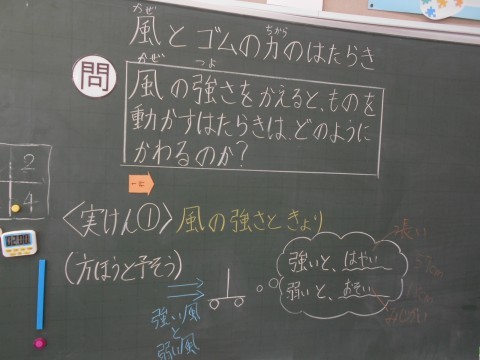 かぜ ちから
風とゴムの力のはたらき
問
かぜ つよ
風の強さをかえると、ものを
動かすはたらきは、どのように
かわるのか?
2
4
02:00
〈実けん①〉風の強さときょり
(方ほうと予そう)
強いと、はやい
弱いと、おそい
強い風
と
弱い風